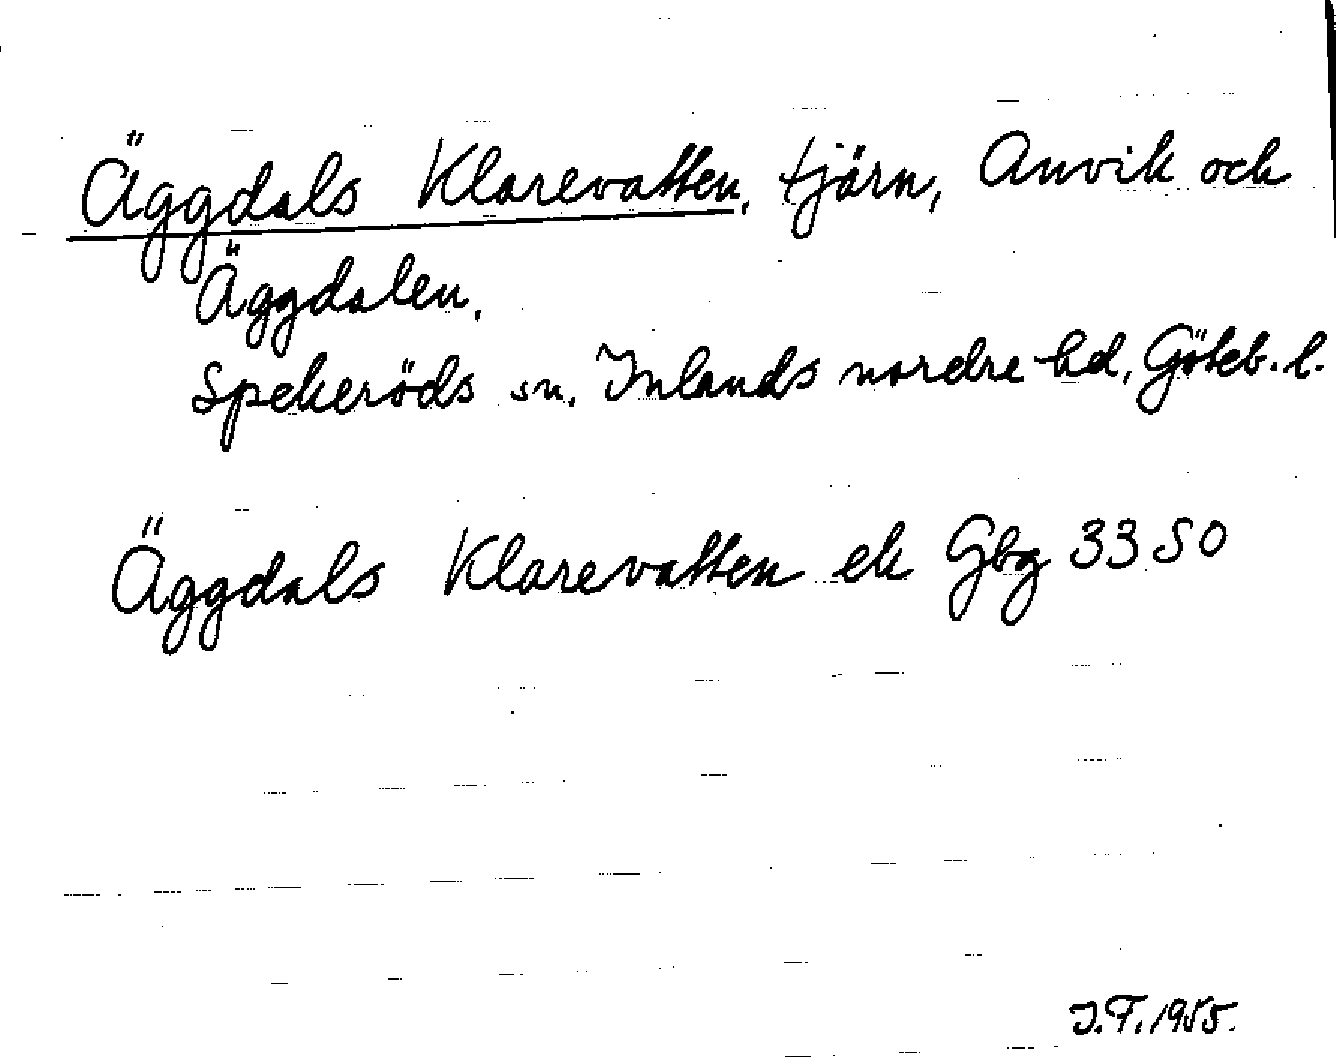 Äggdals Klarevatten, tjärn, Anvik och
Äggdalen.
Spekeröds sn. Inlands nordre hd, Göteb. l.
Äggdals Klarevatten ek Gbg 33 SO
J.F. 1955.